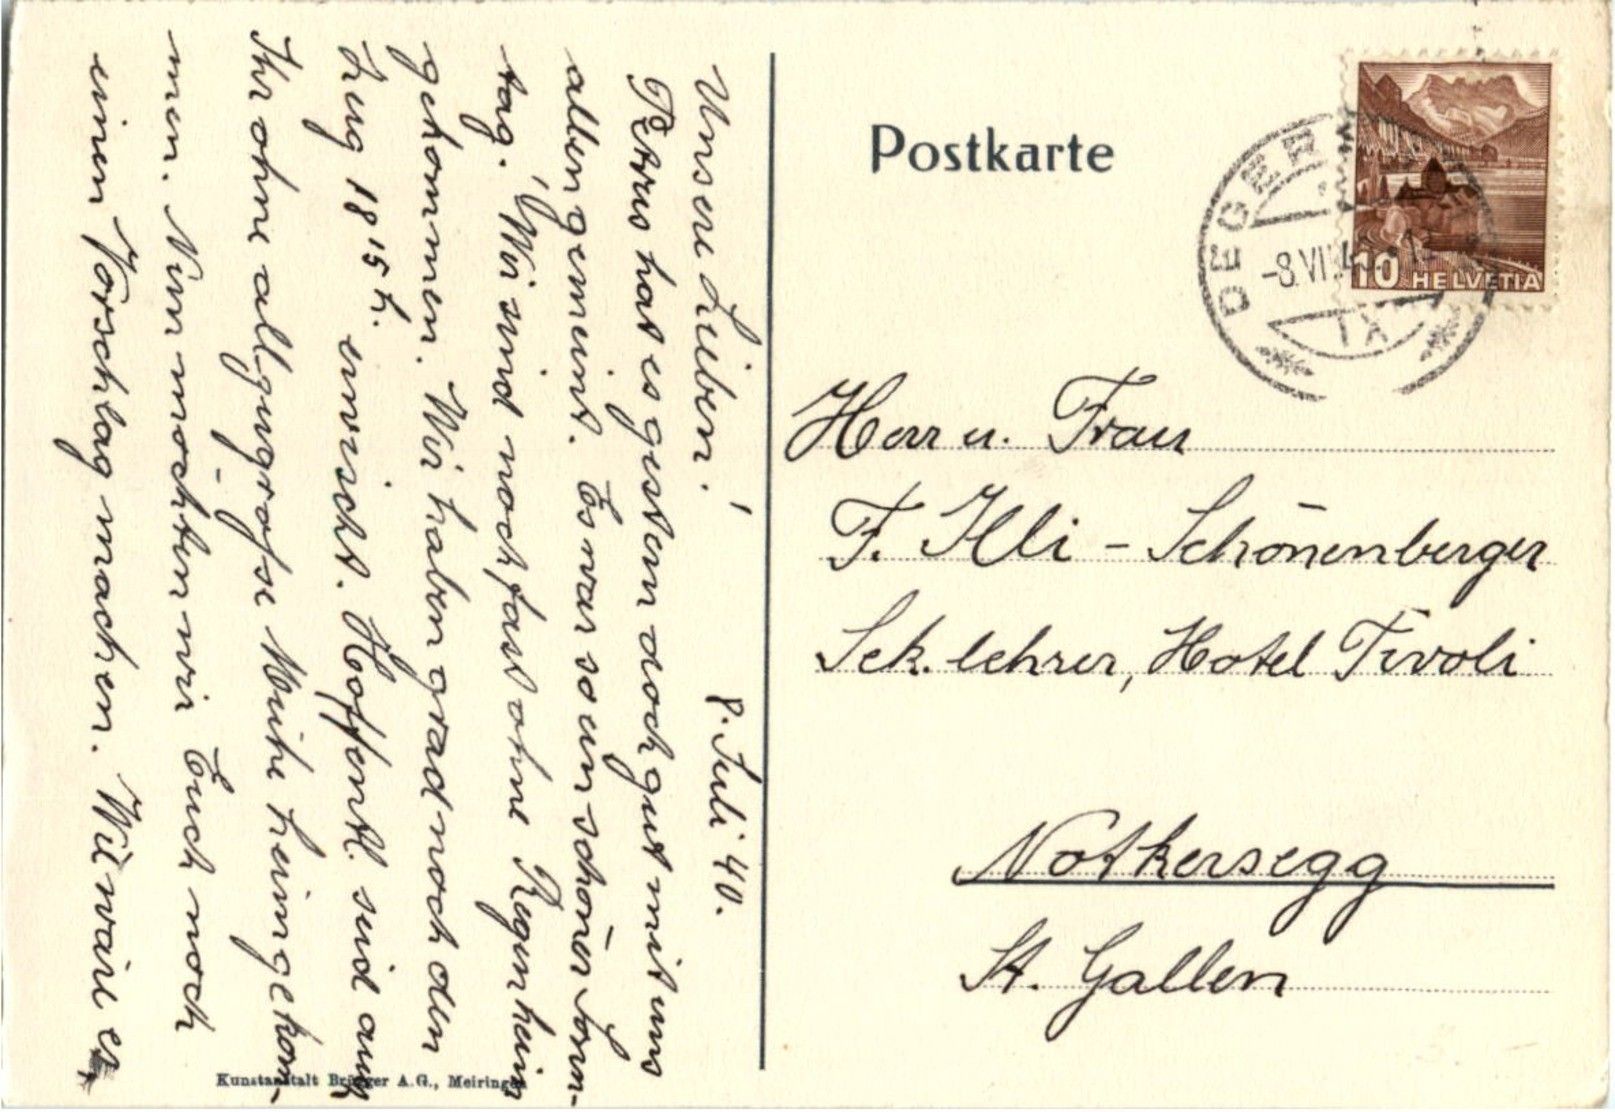 Unsere Lieben!
8. Juli 40.
Petrus hat es gestern doch gut mit uns
allen gemeint. Es war so ein schöner Sonn-
tag. Wir sind noch fast ohne Regen heim
gekommen. Wir haben grad noch den
Zug 18 15 h. erwischt. Hoffentl. seid auch
Ihr ohne allzugrosse Mühe heimgekom-
men. Nun möchten wir Euch noch
einen Vorschlag machen. Wie wäre es,
Kunstanstalt Brügger A.G., Meiringen
Postkarte
DEGER
-8.VII.40
IX
10 HELVETIA
Herr u. Frau
F. Illi - Schönenberger
Sek. lehrer, Hotel Tivoli
Notkersegg
St. Gallen